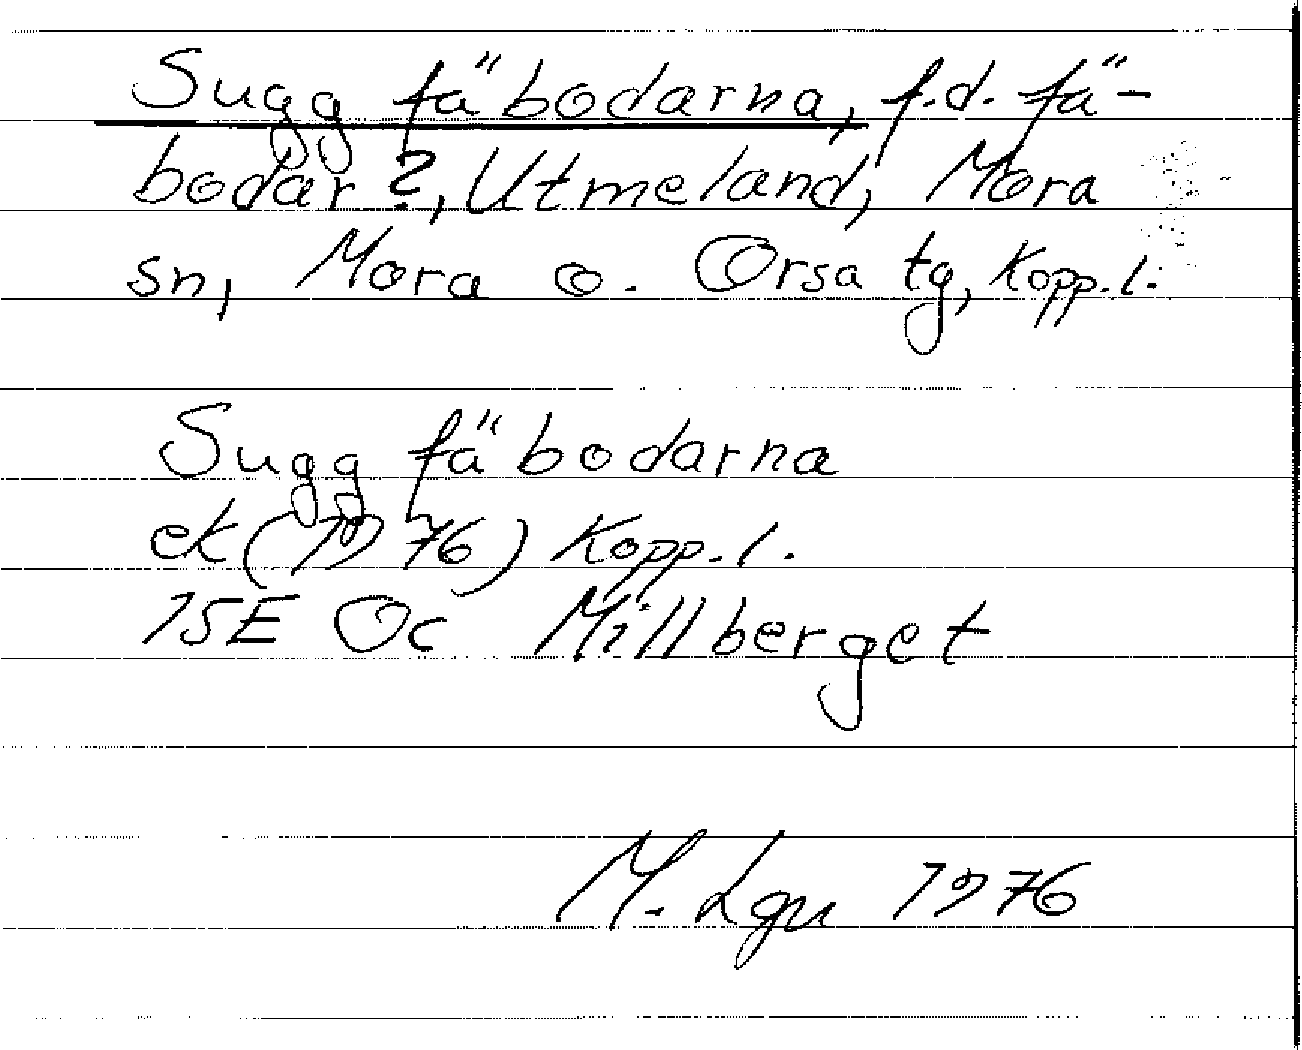 Suggfäbodarna, f.d. fä-
bodar?, Utmeland, Mora
sn, Mora o. Orsa tg, Kopp.l.
Suggfäbodarna
ek (1976) Kopp.l.
15E Oc Millberget
M. Lgu 1976